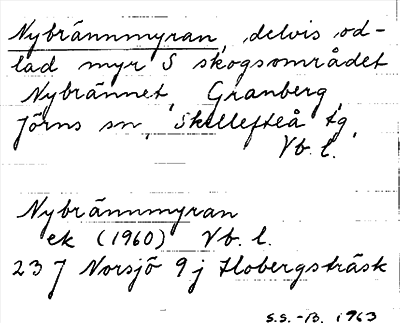 Nybrännmyran, delvis od-
lad myr S skogsområdet
Nybrännet, Granberg,
Jörns sn, Skellefteå tg,
Vb. l.
Nybrännmyran
ek (1960) Vb. l.
23 J Norsjö 9 j Hobergsträsk
S.S.-B. 1963